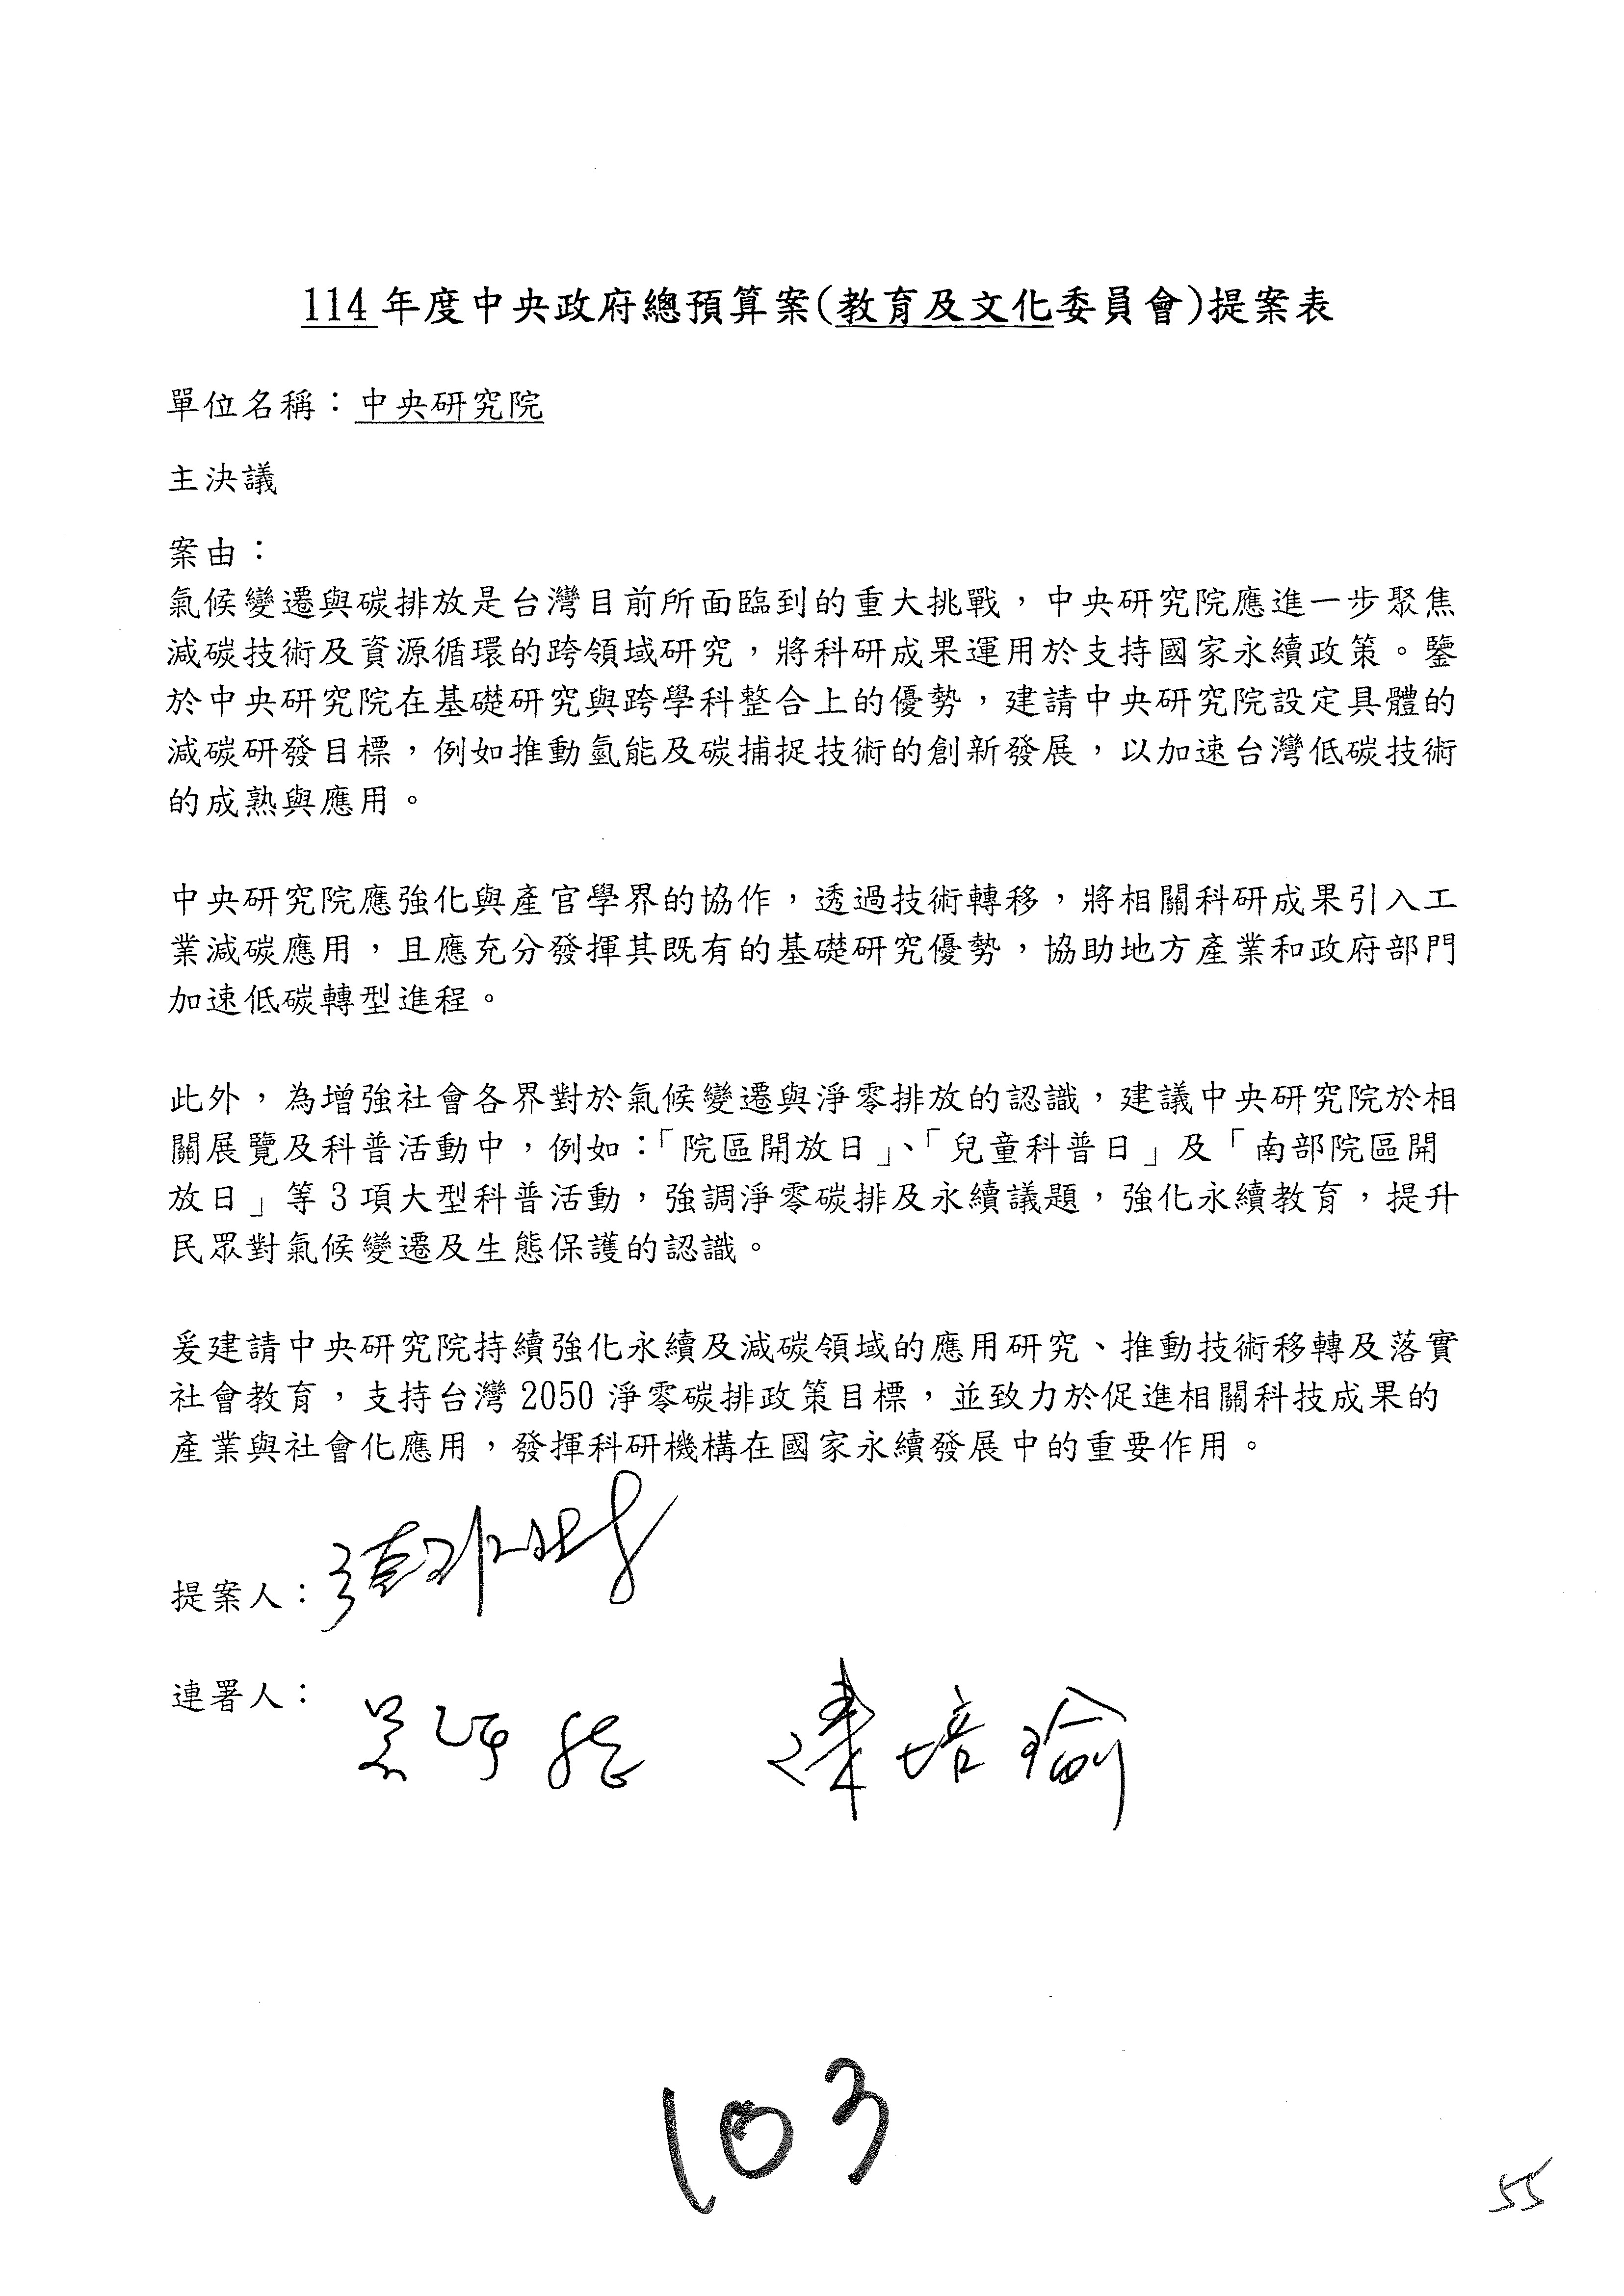 114年度中央政府總預算案(教育及文化委員會)提案表
單位名稱：中央研究院
主決議
案由：
氣候變遷與碳排放是台灣目前所面臨到的重大挑戰，中央研究院應進一步聚焦
減碳技術及資源循環的跨領域研究，將科研成果運用於支持國家永續政策。鑒
於中央研究院在基礎研究與跨學科整合上的優勢，建請中央研究院設定具體的
減碳研發目標，例如推動氫能及碳捕捉技術的創新發展，以加速台灣低碳技術
的成熟與應用。
中央研究院應強化與產官學界的協作，透過技術轉移，將相關科研成果引入工
業減碳應用，且應充分發揮其既有的基礎研究優勢，協助地方產業和政府部門
加速低碳轉型進程。
此外，為增強社會各界對於氣候變遷與淨零排放的認識，建議中央研究院於相
關展覽及科普活動中，例如：「院區開放日」、「兒童科普日」及「南部院區開
放日」等 3 項大型科普活動，強調淨零碳排及永續議題，強化永續教育，提升
民眾對氣候變遷及生態保護的認識。
爰建請中央研究院持續強化永續及減碳領域的應用研究、推動技術移轉及落實
社會教育，支持台灣 2050 淨零碳排政策目標，並致力於促進相關科技成果的
產業與社會化應用，發揮科研機構在國家永續發展中的重要作用。
提案人：
連署人： 陳培瑜
103
55